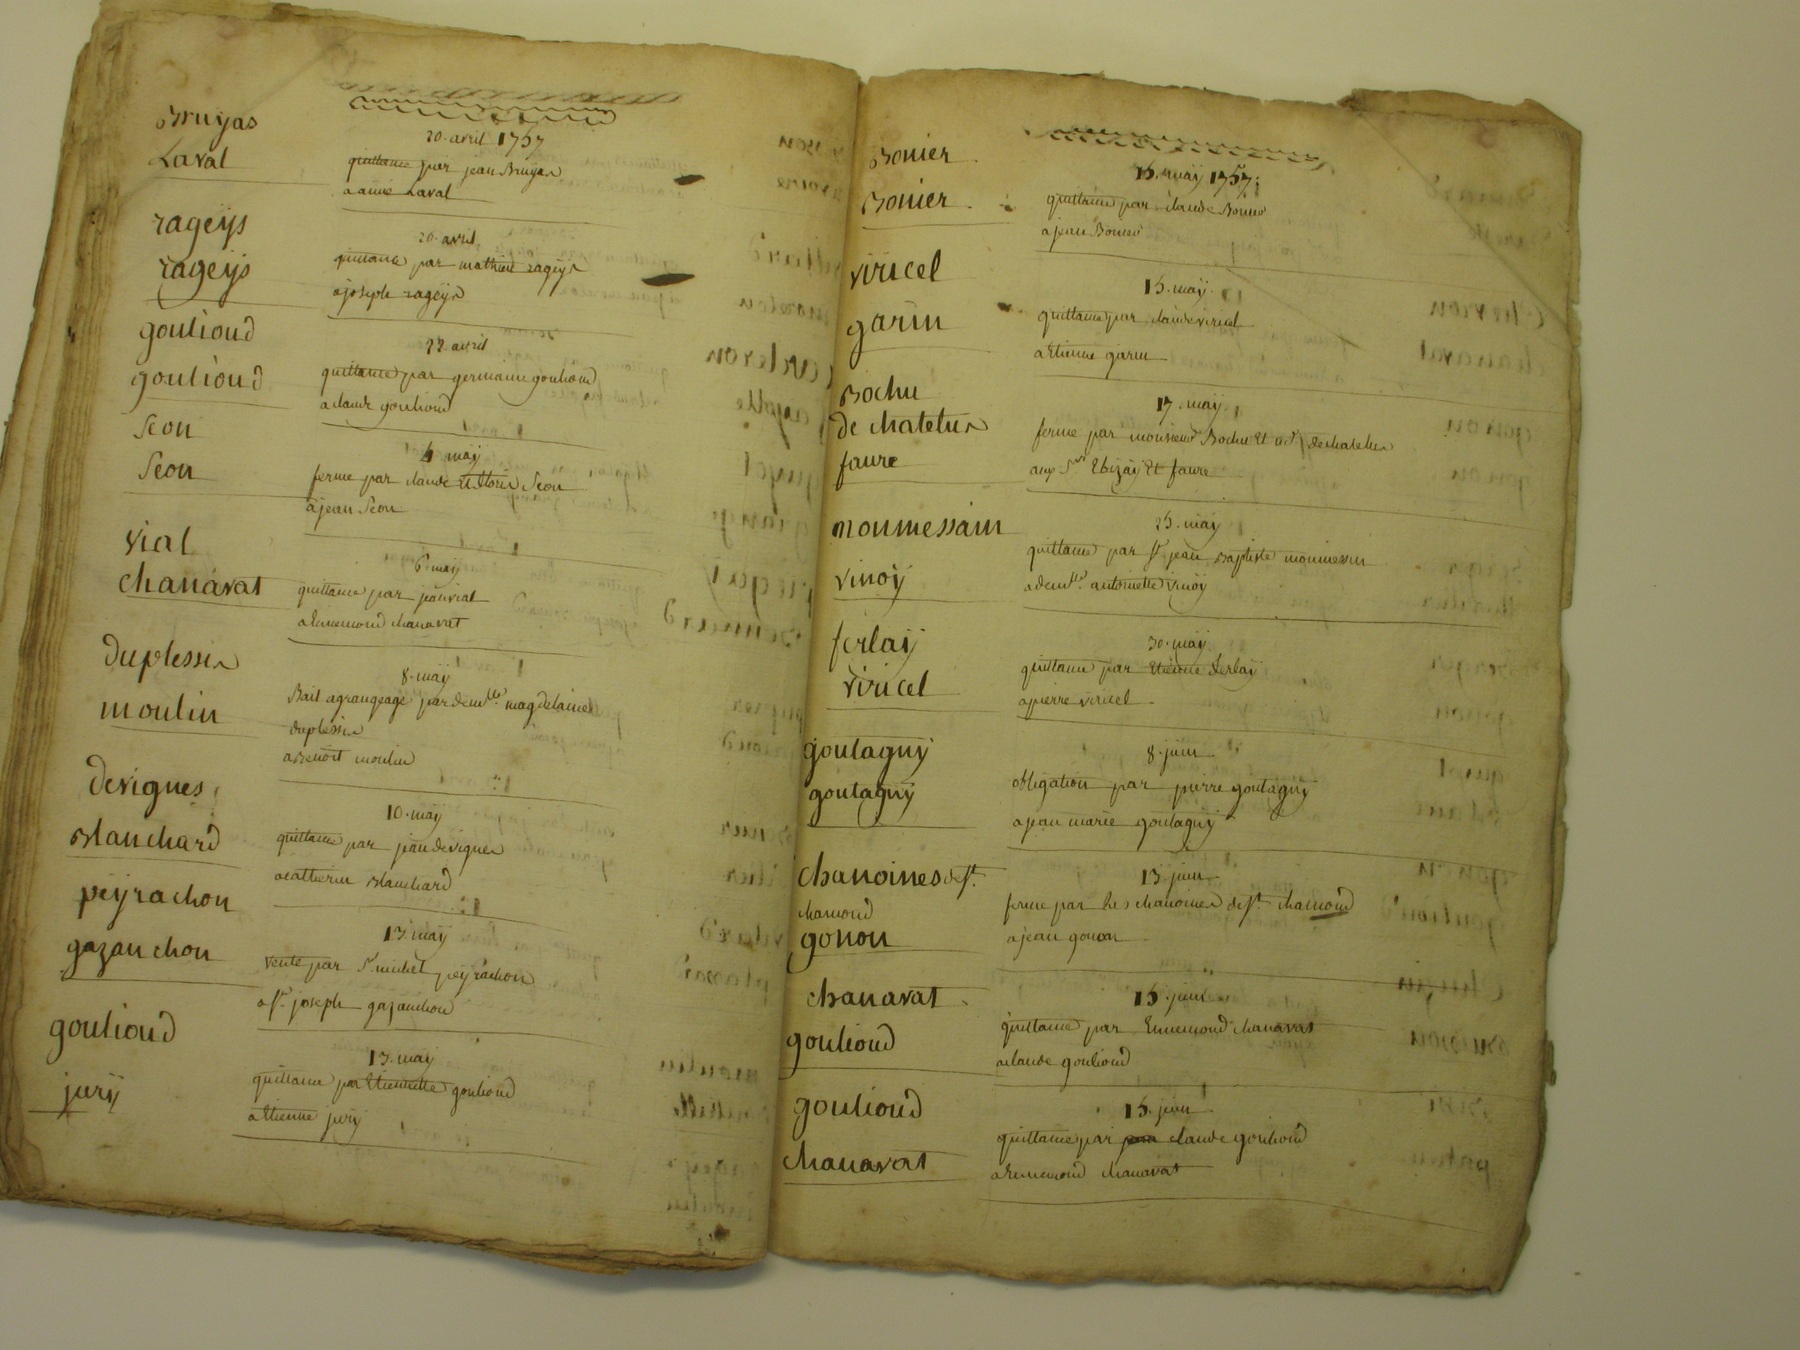 Bruyas
Laval
20. avril 1757
quittance par jean Bruyas
a aimé Laval
rageÿs
rageÿs
20. avril
quittance par mathieu rageÿs
a joseph rageÿs
goulioud
goulioud
22. avril
quittance par germaine goulioud
a claude goulioud
Seon
Seon
4 maÿ
ferme par claude et Seon
a jean Seon
vial
chanavat
6. maÿ
quittance par jean vial
a Ennemond chanavat
duplessis
moulin
8. maÿ
Bail a grangeage par demlle. magdelaine
duplessis
a Benoît moulin
devignes
Blanchard
10. maÿ
quittance par jean devignes
a catherin Blanchard
peÿrachon
gazanchon
13. maÿ
vente par Sr. michel peÿrachon
a Sr. joseph gazanchon
goulioud
jurÿ
13. maÿ
quittance par Etiennette goulioud
a Etienne jurÿ
Bonier
Bonier
15. maÿ 1757.
quittance par claude Bonier
a jean Bonier
viricel
garin
15. maÿ.
quittance par claude viricel
a Etienne garin
Bochu
de chatelus
faure
17. maÿ
ferme par monsieur Bochu et de chatelus
aux Srs et faure
monmessain
vinoÿ
25. maÿ
quittance par Sr. jean Baptiste monmessin
a demlle. antoinette vinoÿ
ferlaÿ
viricel
30. maÿ
quittance par Etienne ferlaÿ
a pierre viricel
goutagnÿ
goutagnÿ
8. juin
obligation par pierre goutagnÿ
a jean marie goutagnÿ
chanoines de St.
chamond
gonon
13. juin
ferme par les chanoines de St. chamond
a jean gonon
chanavat
goulioud
15. juin
quittance par Ennemond chanavat
a claude goulioud
goulioud
chanavat
15. juin
quittance par claude goulioud
a Ennemond chanavat